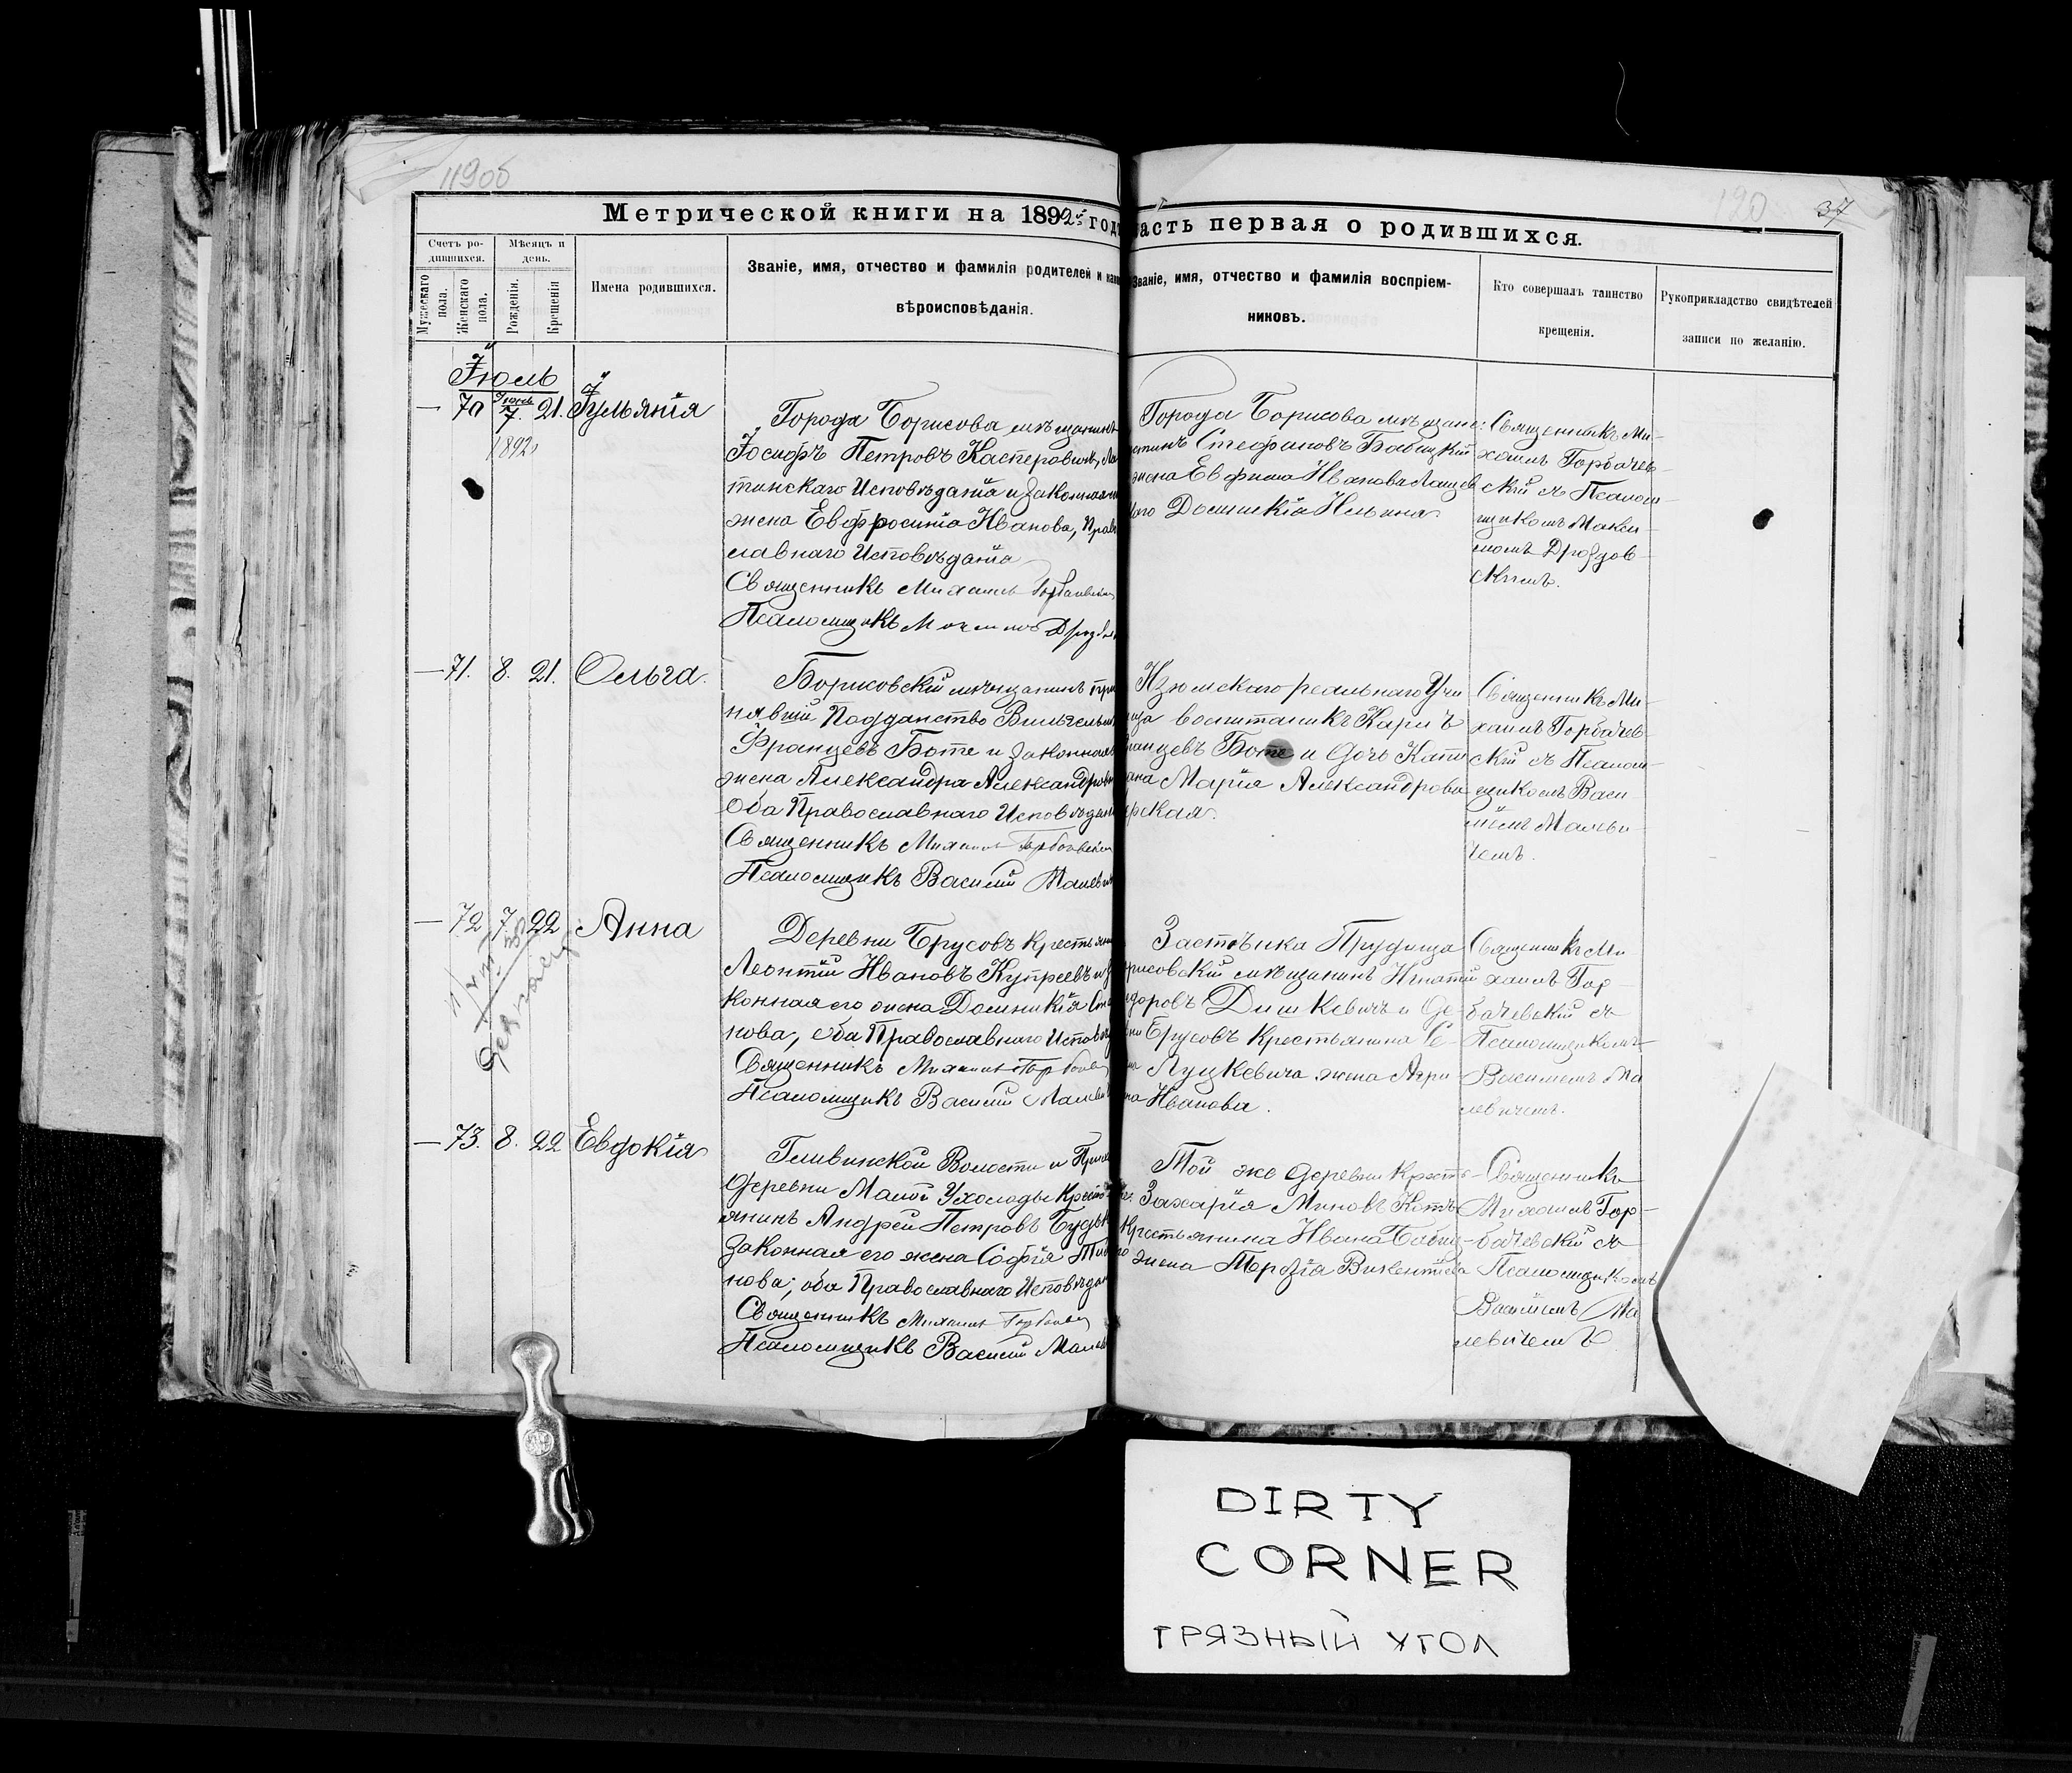 190об
190 37
Метрической книги на 1892й годъ
часть первая о родившихся.
Счетъ ро-
дившихся.
Мужескаго пола.
Женскаго пола.
Мѣсяцъ и
день.
Рожденія.
Крещенія
Имена родившихся.
Званіе, имя, отчество и фамилія родителей и
вѣроисповѣданія.
Званіе, имя, отчество и фамилія воспріем-
никовъ.
Кто совершалъ таинство
крещенія.
Рукоприкладство свидѣтелей
записи по желанію.
Іюль
— 70 Іюнь 7. 21. Іуліянія
1892
Города Борисова мѣщанинъ
Іосифъ Петровъ Касперовичъ, Ла
тинскаго Исповѣданія и Законная
жена Евфросинія Иванова, Прав
славнаго Исповѣданія
Священникъ Михаилъ Горбачевскій
Псаломщикъ Дроздов
Города Борисова мѣщане:
Стефановъ Бабицкій
жена Евфимія Иванова
Домникія Ильина
Священникъ Ми-
хаилъ Горбачев-
скій съ Псалом-
щикомъ Макси
момъ Дроздов-
скимъ.
— 71. 8. 21. Ольга.
Борисовскій мѣщанинъ При
нявшій Подданство Вильгельм
Францевъ Боте и Законная
жена Александра Александров
Оба Православнаго Исповѣдан
Священникъ Михаилъ Горбачевскій
Псаломщикъ Василій Малеви
Изюмскаго реальнаго Учи
воспитаникъ Карлъ
ранцевъ Боте и Дочь Капи
ана Марія Александрова
рская.
Священникъ Ми-
хаилъ Горбачев-
скій съ Псалом-
щикомъ Васи
ліемъ Малеви-
чемъ.
— 72 7. 22 Анна
Деревни Брусовъ Крестьянин
Леонтій Ивановъ Купреевъ и
конная его жена Домникія Сте
нова, оба Православнаго Исповѣ
Священникъ Михаилъ Горбачев
Псаломщикъ Василій Малеви
Застѣнка Прудища
рисовскій мѣщанинъ Игнатій
доровъ Дишкевичъ и Де-
ни Брусовъ Крестьянина Се-
Луцкевича жена Агри
на Иванова.
Священникъ Ми
хаилъ Гор-
бачевскій съ
Псаломщикомъ
Василіемъ Ма
левичемъ.
— 73. 8. 22 Евдокія
Гливинской Волости и Прих
деревни Малой Ухолоды Кресть
янинъ Андрей Петровъ Будьк
Законная его жена Софія
нова; оба Православнаго Исповѣдан
Священникъ Михаилъ Горбачев
Псаломщикъ Василій Малев
Той же деревни Кресть-
Захарія Миновъ Котъ
Крестьянина Ивана
жена Викентіева
Священникъ
Михаилъ Гор-
бачевскій съ
Псаломщикомъ
Василіемъ Ма
левичемъ
DIRTY
CORNER
ГРЯЗНЫЙ УГОЛ